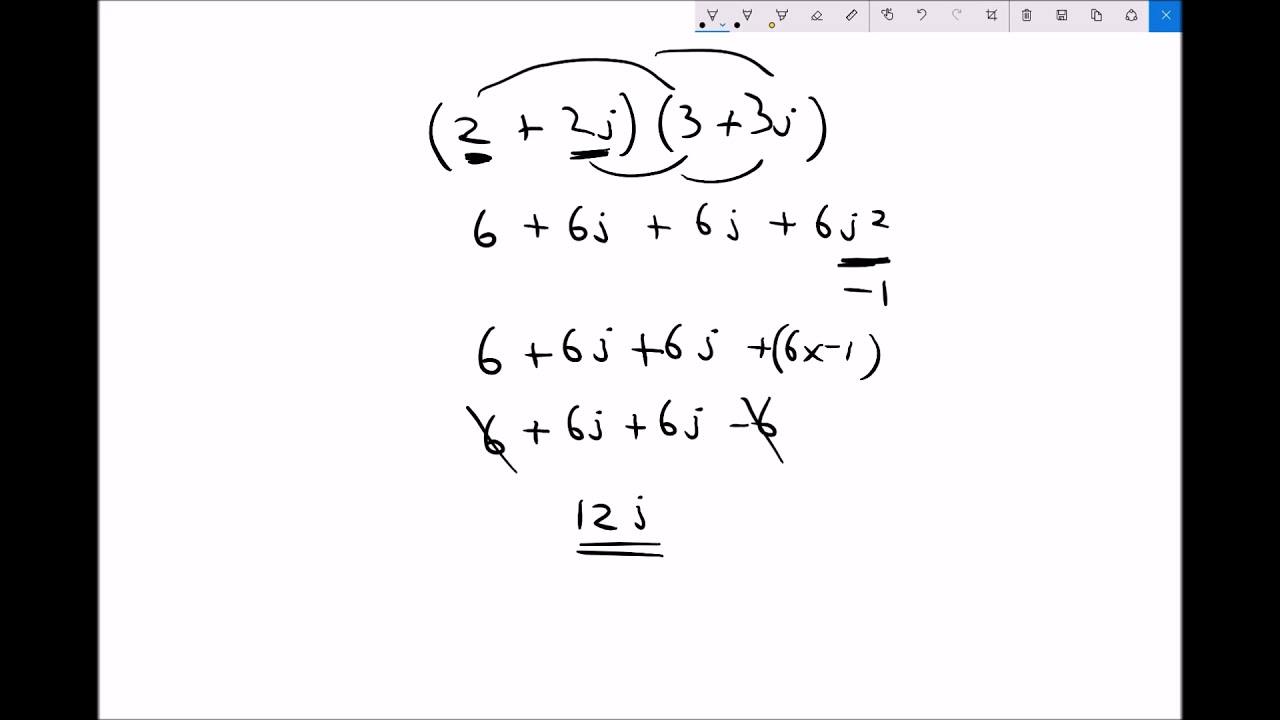 (2 + 2j)(3 + 3j)
6 + 6j + 6j + 6j²
-1
6 + 6j + 6j + (6x-1)
6 + 6j + 6j - 6
12j